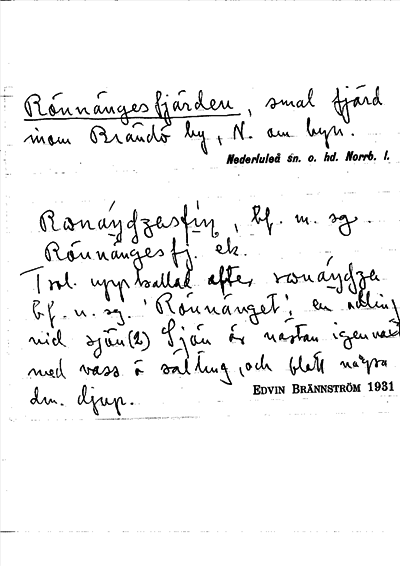 Rönnängesfjärden, smal fjärd
inom Brändö by, N. om byn.
Nederluleå sn. o. hd. Norrb. l.
bf. m. sg.
Rönnängesfj. ek.
Trol. uppkallad efter
bf. n. sg. 'Rönnänget', en
vid sjön (2) Sjön är nästan igenväxt
med vass o säfting, och blott några
dm. djup.
EDVIN BRÄNNSTRÖM 1931